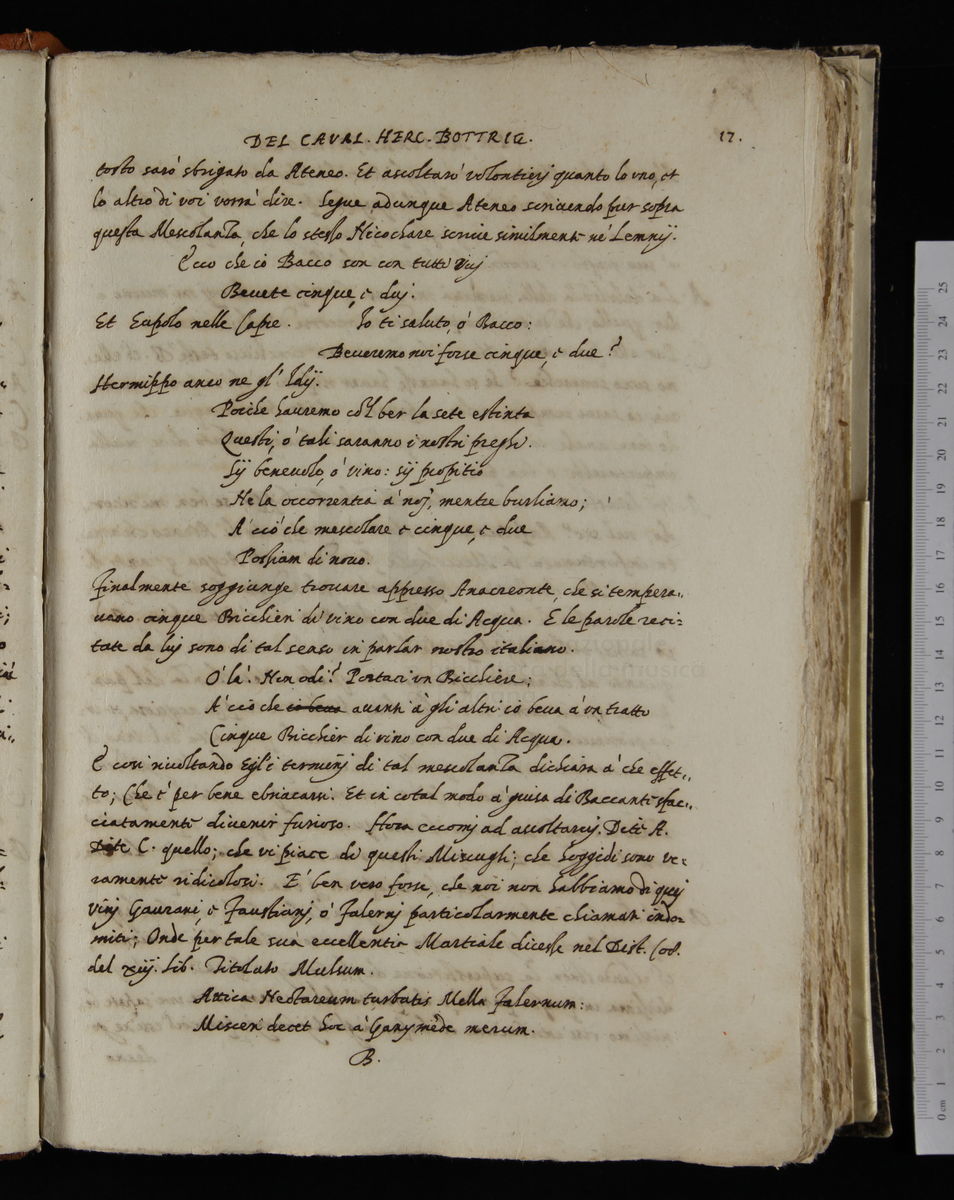 DEL CAVAL. HERC. BOTTRIG. 17.
tosto sarò sbrigato da Ateneo. Et ascoltarò volontierj quanto lo uno, et
lo altro di voi vorrà dire. Segue adunque Ateneo scrivendo pur sopra
questa Mescolanza, che lo stesso Nicochare scrive similmente ne' Lemnij.
Ecco che iò Bacco son con tutti
Bevete cinque, e duj.
Et Eupolo nelle Capre. Io ti saluto, ò Bacco:
Beveremo noi forse cinque, e due?
Hermippo anco ne gl' Idij.
Poiche havremo col ber la sete estinta
Questi, ò tali saranno i nostri preghi.
Sij benevolo, ò vino: sij propitio
Ne la occorrentia à noj, mentre burliamo;
A' ciò che mescolare e cinque, e due
Possiam di novo.
Finalmente soggiunge trovare appresso Anacreonte, che si tempera,,
vano cinque Bicchieri di vino con due di Acqua. E le parole reci=
tate da luj sono di tal senso in parlar nostro italiano.
O' là! Non odi? Portaci un Bicchiere;
A' ciò che io beva avanti à gli altri iò beva à un tratto
Cinque Bicchier di vino con due di Acqua.
E così rivoltando Egl' i terminj di tal mescolanza dichiara à che effet,,
to; Che è per bene ebriacarsi. Et in cotal modo à guisa di Baccanti sfac,,
ciatamente divenir furioso. Hora eccomj ad ascoltarvj. Dite A.
Dite C. quello; che vi piace di questi Miscugli; che hoggidì sono ve=
ramente ridicolosi. E' ben vero forse, che noi non habbiamo di quej
vinj Gaurani, e Faustianj, ò Falernj particolarmente chiamati indo=
miti; Onde per tale sua eccellentia Martiale dicesse nel Dist. 108.
del xiij. lib. Titolato Mulsum.
Attica Nectareum turbatis Mella Falernum:
Misceri decet hoc à Ganymede merum.
B.